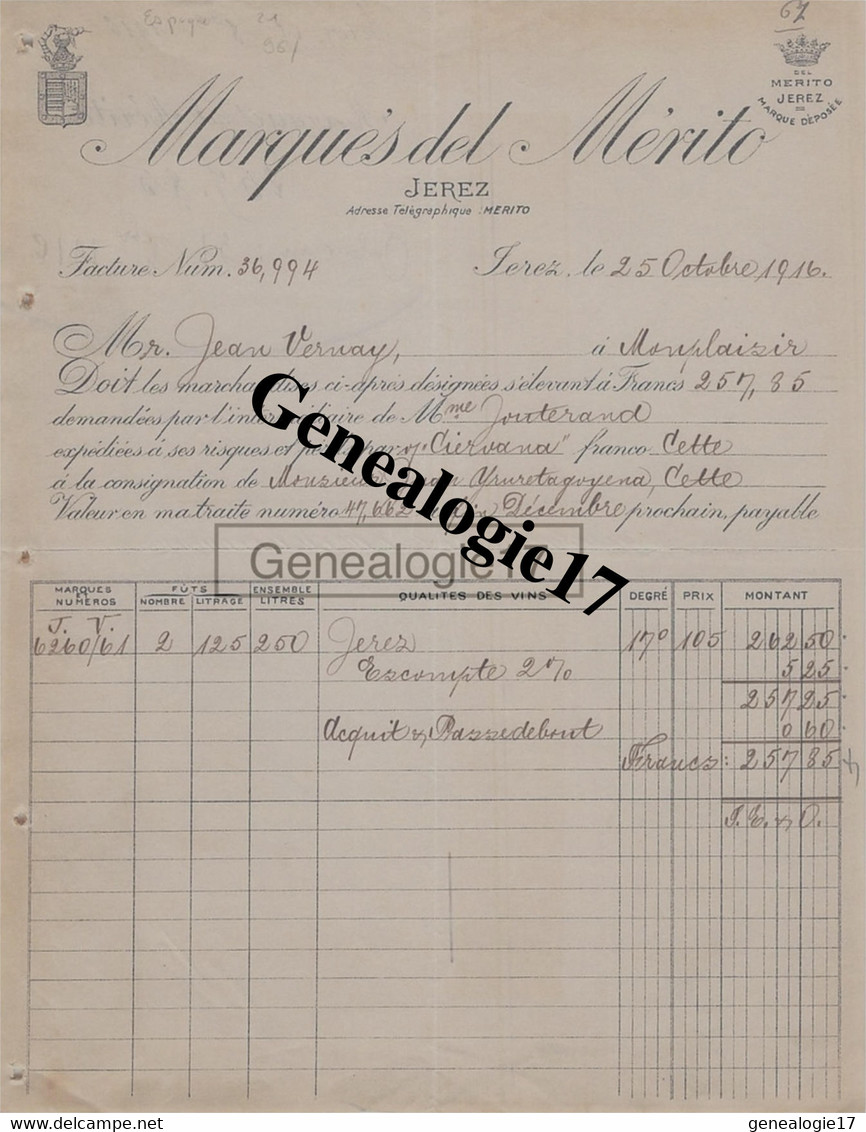 Espagne 21
96/
67
DEL
MERITO
JEREZ
MARQUE DÉPOSÉE
Marqués del Mérito
JEREZ
Adresse Télégraphique : MERITO
Facture Num. 36,994
Jerez, le 25 Octobre 1916.
Mr. Jean Vernay, à Monplaisir
Doit les marchandises ci-après désignées s'élevant à Francs 257,85
demandées par l'intermédiaire de Mme Jouterand
expédiées à ses risques et par v/ "Ciervana" franco Cette
à la consignation de Monsieur Yruretagoyena, Cette
Valeur en ma traite numéro 47,662 fin Décembre prochain, payable
Genealogie17
Genealogie17
MARQUES ET NUMEROS FÛTS NOMBRE LITRAGE ENSEMBLE LITRES QUALITÉS DES VINS DEGRÉ PRIX MONTANT
J. V.
6260/61 2 125 250 Jerez 17º 105 262 50
Escompte 2% 5 25
257 25
Acquit & Passedebout 0 60
Francs: 257 85
S. E. & O.
delcampe.net
genealogie17